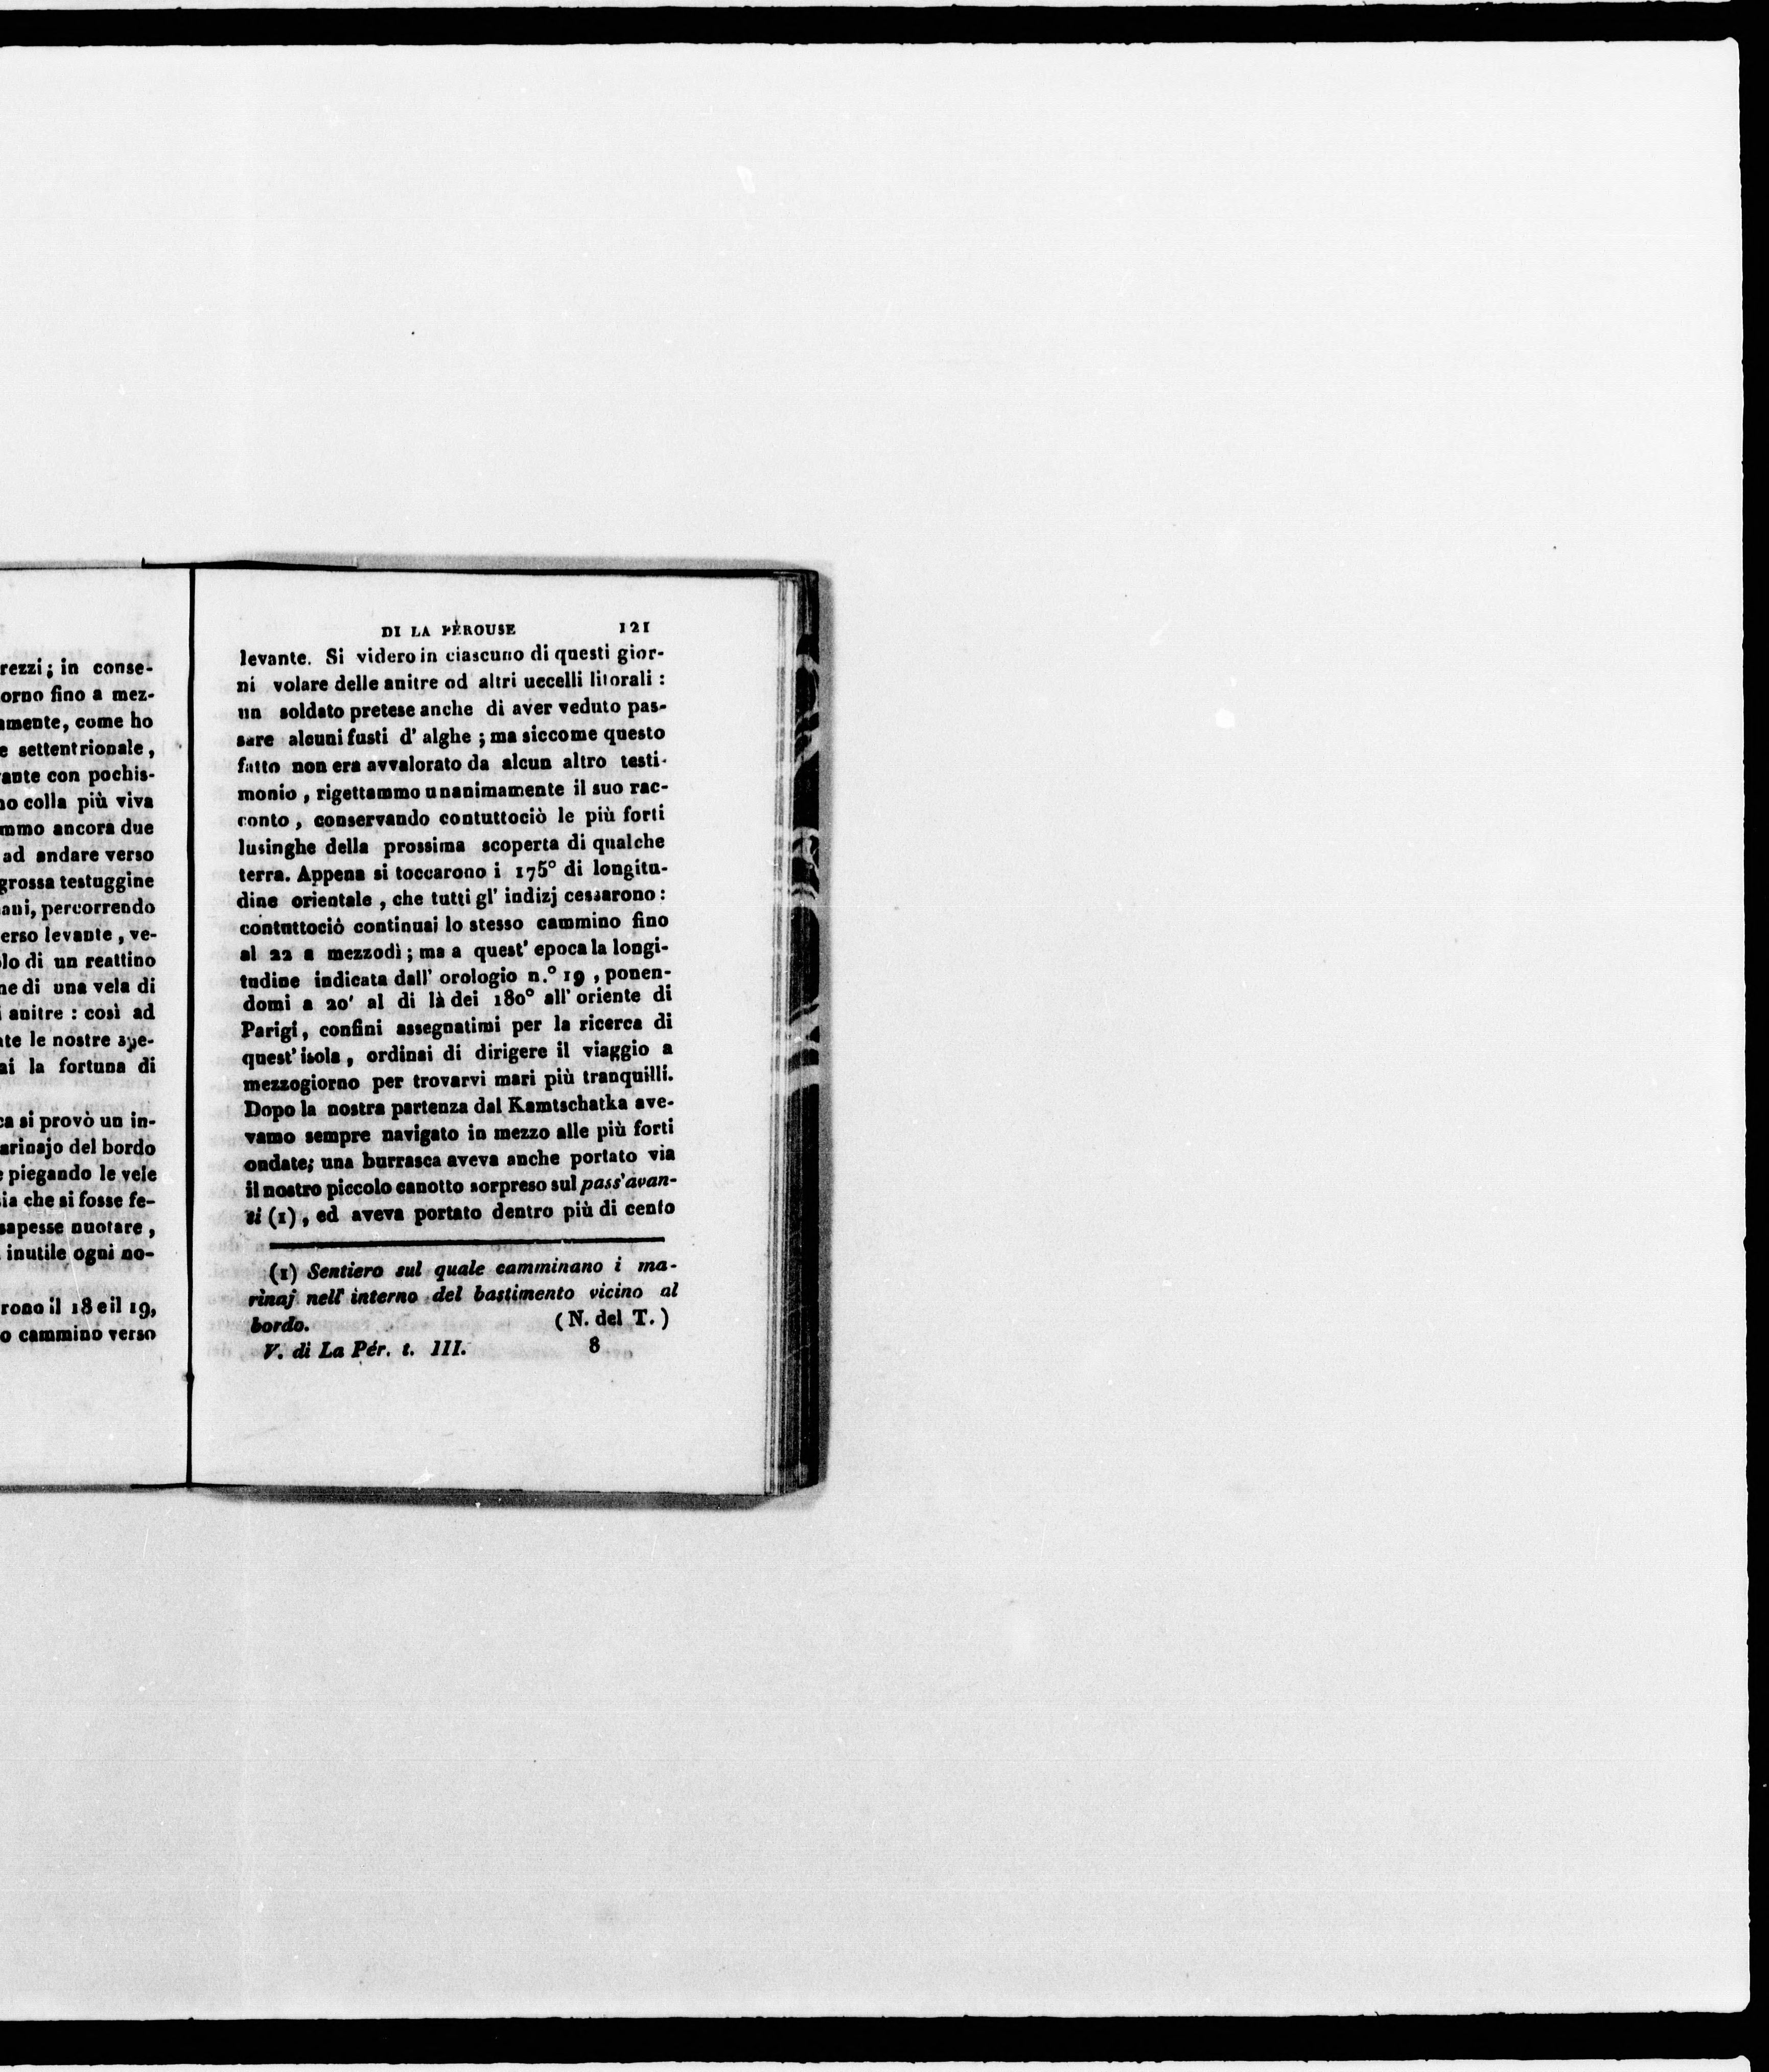 rezzi; in conse-
orno fino a mez-
mente, come ho
e settentrionale,
ante con pochis-
no colla più viva
mmo ancora due
ad andare verso
grossa testuggine
ani, percorrendo
erso levante, ve-
lo di un reattino
ne di una vela di
anitre : così ad
te le nostre spe-
ai la fortuna di
ca si provò un in-
arinajo del bordo
e piegando le vele
ia che si fosse fe-
sapesse nuotare,
inutile ogni no-
rono il 18 e il 19,
o cammino verso
DI LA PÈROUSE 121
levante. Si videro in ciascuno di questi gior-
ni volare delle anitre od altri uccelli litorali :
un soldato pretese anche di aver veduto pas-
sare alcuni fusti d' alghe ; ma siccome questo
fatto non era avvalorato da alcun altro testi-
monio , rigettammo unanimamente il suo rac-
conto , conservando contuttociò le più forti
lusinghe della prossima scoperta di qualche
terra. Appena si toccarono i 175° di longitu-
dine orientale , che tutti gl' indizj cessarono :
contuttociò continuai lo stesso cammino fino
al 22 a mezzodì ; ma a quest' epoca la longi-
tudine indicata dall' orologio n.° 19 , ponen-
domi a 20' al di là dei 180° all' oriente di
Parigi, confini assegnatimi per la ricerca di
quest' isola , ordinai di dirigere il viaggio a
mezzogiorno per trovarvi mari più tranquilli.
Dopo la nostra partenza dal Kamtschatka ave-
vamo sempre navigato in mezzo alle più forti
ondate; una burrasca aveva anche portato via
il nostro piccolo canotto sorpreso sul pass'avan-
ti (1) , ed aveva portato dentro più di cento
(1) Sentiero sul quale camminano i ma-
rinaj nell' interno del bastimento vicino al
bordo. (N. del T.)
V. di La Pér. t. III. 8